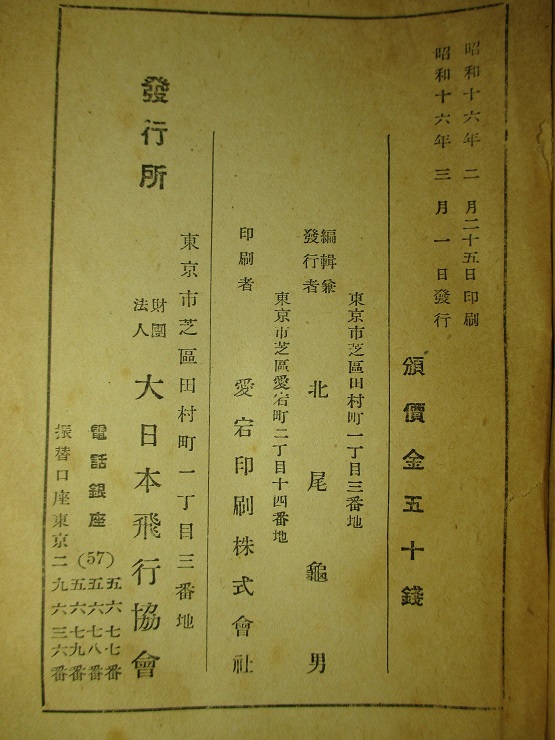 昭和十六年二月二十五日印刷
昭和十六年三月一日發行
頒價金五十錢
東京市芝區田村町一丁目三番地
編輯兼
發行者
北尾龜男
東京市芝區愛宕町二丁目十四番地
印刷者
愛宕印刷株式會社
東京市芝區田村町一丁目三番地
發行所
財團
法人
大日本飛行協會
電話銀座(57)
五六七七番
五六七八番
五六七九番
振替口座東京二九六三六番